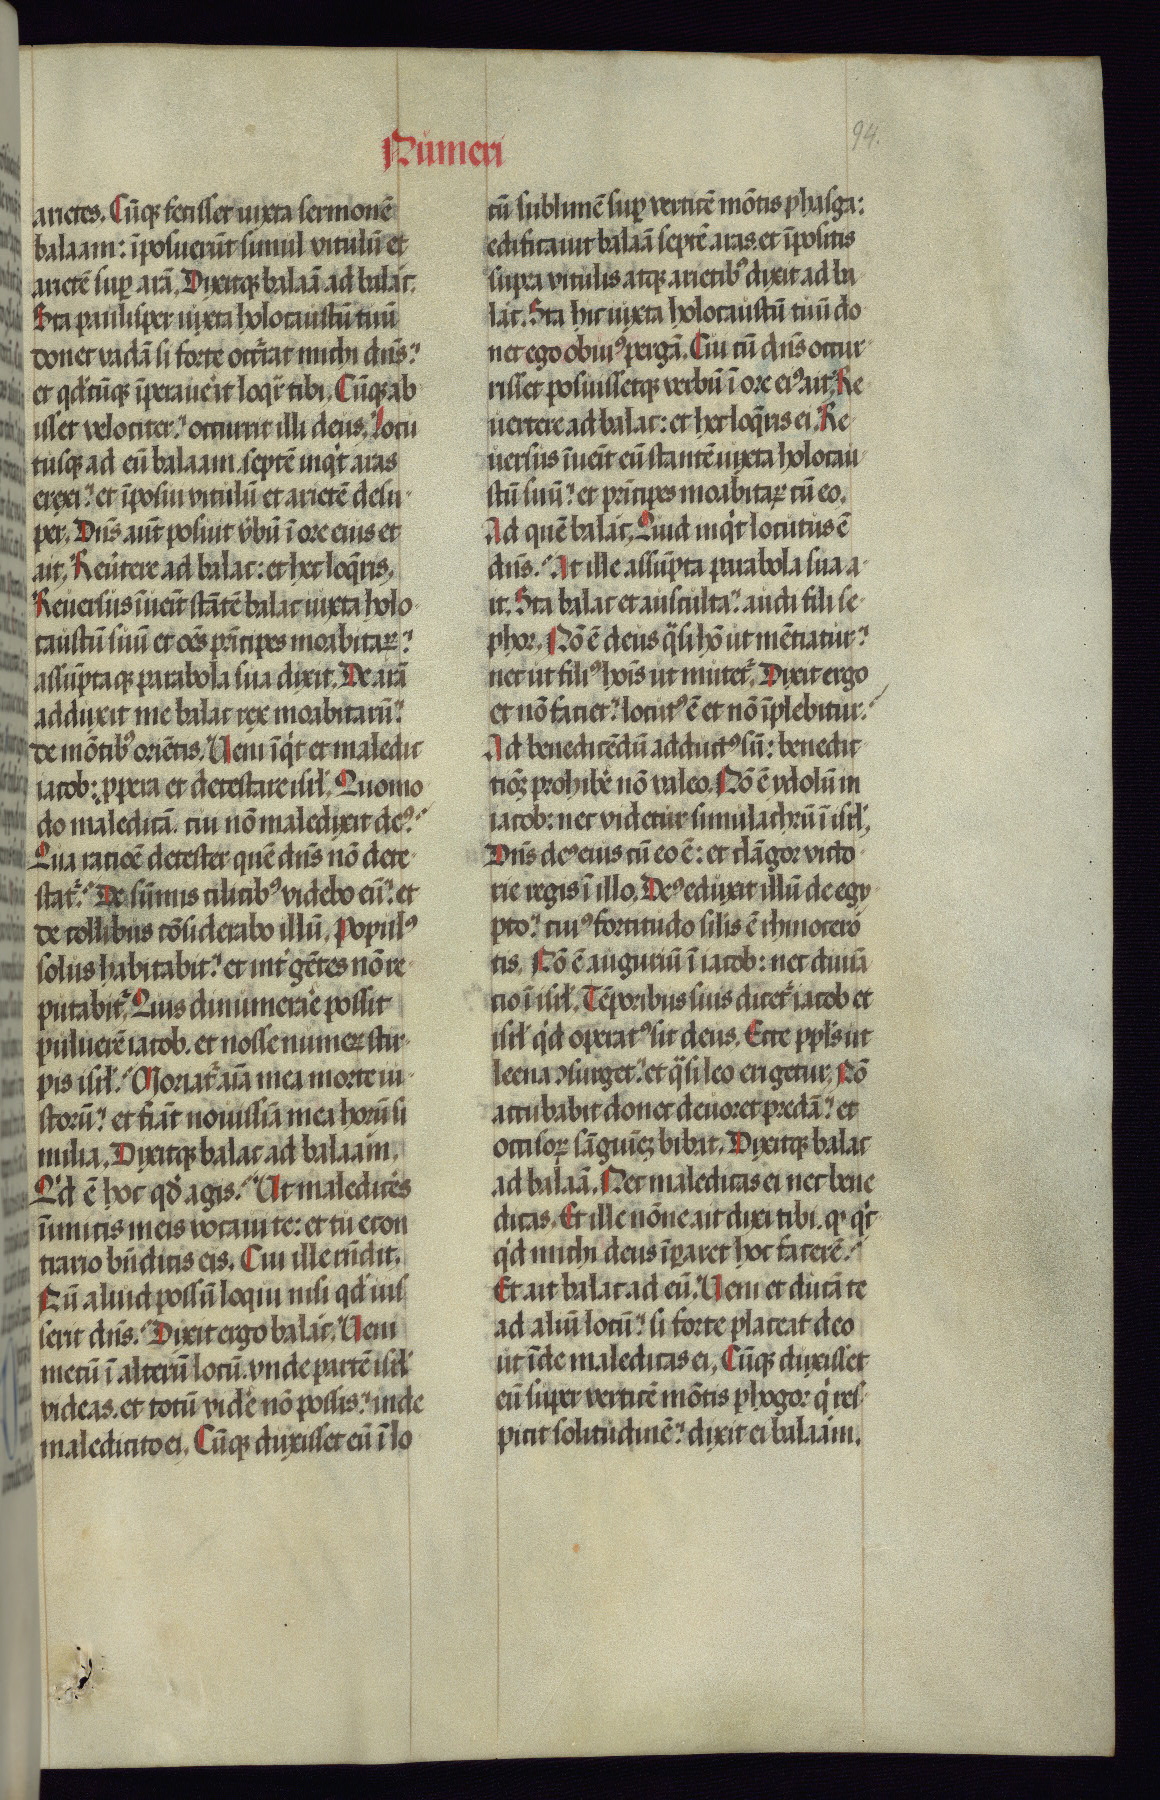 Numeri
94.
arietes. Cūq; fecisset iuxta sermonē
balaam: īposuerūt simul vitulū et
arietē sup arā. Dixitq; balaā ad balac.
Sta paulisper iuxta holocaustū tuū
donec vadā si forte occr̄at michi dn̄s:
et qd'cūq; īperaue'it loqr̄ tibi. Cūq; ab
isset velociter: occurrit illi deus. Locu
tusq; ad eū balaam. septē inq't aras
erexi: et īposui vitulū et arietē desu
per. Dn̄s aūt posuit v'bū ī ore eius et
ait. Reu'tere ad balac: et hec loq̄ris.
Reuersus īuēit stātē balac iuxta holo
caustū suū et oēs pn̄cipes moabitaꝝ:
assūptaq; parabola sua dixit. De arā
adduxit me balac rex moabitarū:
de mōtibꝰ oriētis. Veni īq't et maledic
iacob: ꝓpera et detestare isrl'. Quomo
do maledicā. cui nō maledixit deꝰ:
Qua racōe detester quē dn̄s nō dete
stat'. De sūmis cilicibꝰ videbo eū: et
de collibus cōsiderabo illū. Populꝰ
solus habitabit: et int' gētes nō re
putabit'. Quis dinumera'e possit
puluerē iacob. et nosse numeꝝ stir
pis isrl'. Moriat' aīa mea morte iu
storū: et fiāt nouissīa mea horū si
milia. Dixitq; balac ad balaam.
Qd' ē hoc qd' agis. Ut maledicēs
īimicis meis vocaui te: et tu econ
trario bn̄dicis eis. Cui ille rn̄dit.
Nū aliud possū loqui nisi qd' ius
serit dn̄s. Dixit ergo balac. Veni
mecū ī alterū locū. vnde partē isrl'
videas. et totū vide'e nō possis: inde
maledicito ei. Cūq; duxisset eū ī lo
cū sublimē sup verticē mōtis phasga:
edificauit balaā septē aras. et īpositis
supra vitulis atq; arietibꝰ dixit ad ba
lac. Sta hic iuxta holocaustū tuū do
nec ego obuiꝰ pergā. Cui cū dn̄s occur
risset posuissetq; verbū ī ore eiꝰ ait. Re
uertere ad balac: et hec loq̄ris ei. Re
uersus īuēit eū stantē iuxta holocau
stū suū: et prīcipes moabitaꝝ cū eo.
Ad quē balac. Quid inq't locutus ē
dn̄s. At ille assūpta parabola sua a
it. Sta balac et ausculta: audi fili se
phor. Nō ē deus q̄si hō ut mētiatur:
nec ut filiꝰ hoīs ut mutet'. Dixit ergo
et nō faciet: locutꝰ ē et nō īplebitur.
Ad benedicēdū adductꝰ sū: benedic
tiōꝫ prohibe'e nō valeo. Nō ē ydolū in
iacob: nec videtur simulachrū ī isrl'.
Dn̄s deꝰ eius cū eo ē: et clāgor victo
rie regis ī illo. Deꝰ eduxit illū de egy
pto: cuiꝰ fortitudo silis ē rhinocero
tis. Nō ē auguriū ī iacob: nec diuīa
tio ī isrl'. Tēporibus suis dicet' iacob et
isrl' q'd operatꝰ sit deus. Ecce ppl's ut
leena ↄsurget: et q̄si leo erigetur. Nō
accubabit donec deuoret predā: et
occisoꝝ sāguīeꝫ bibat. Dixitq; balac
ad balaā. Nec maledicas ei nec bene
dicas. Et ille nōne ait dixi tibi. qꝭ q'c
q'd michi deus īparet hoc facerē.
Et ait balac ad eū. Veni et ducā te
ad aliū locū: si forte placeat deo
ut īde maledicas ei. Cūq; duxisset
eū super verticē mōtis phogor q' res
picit solitudinē: dixit ei balaam.